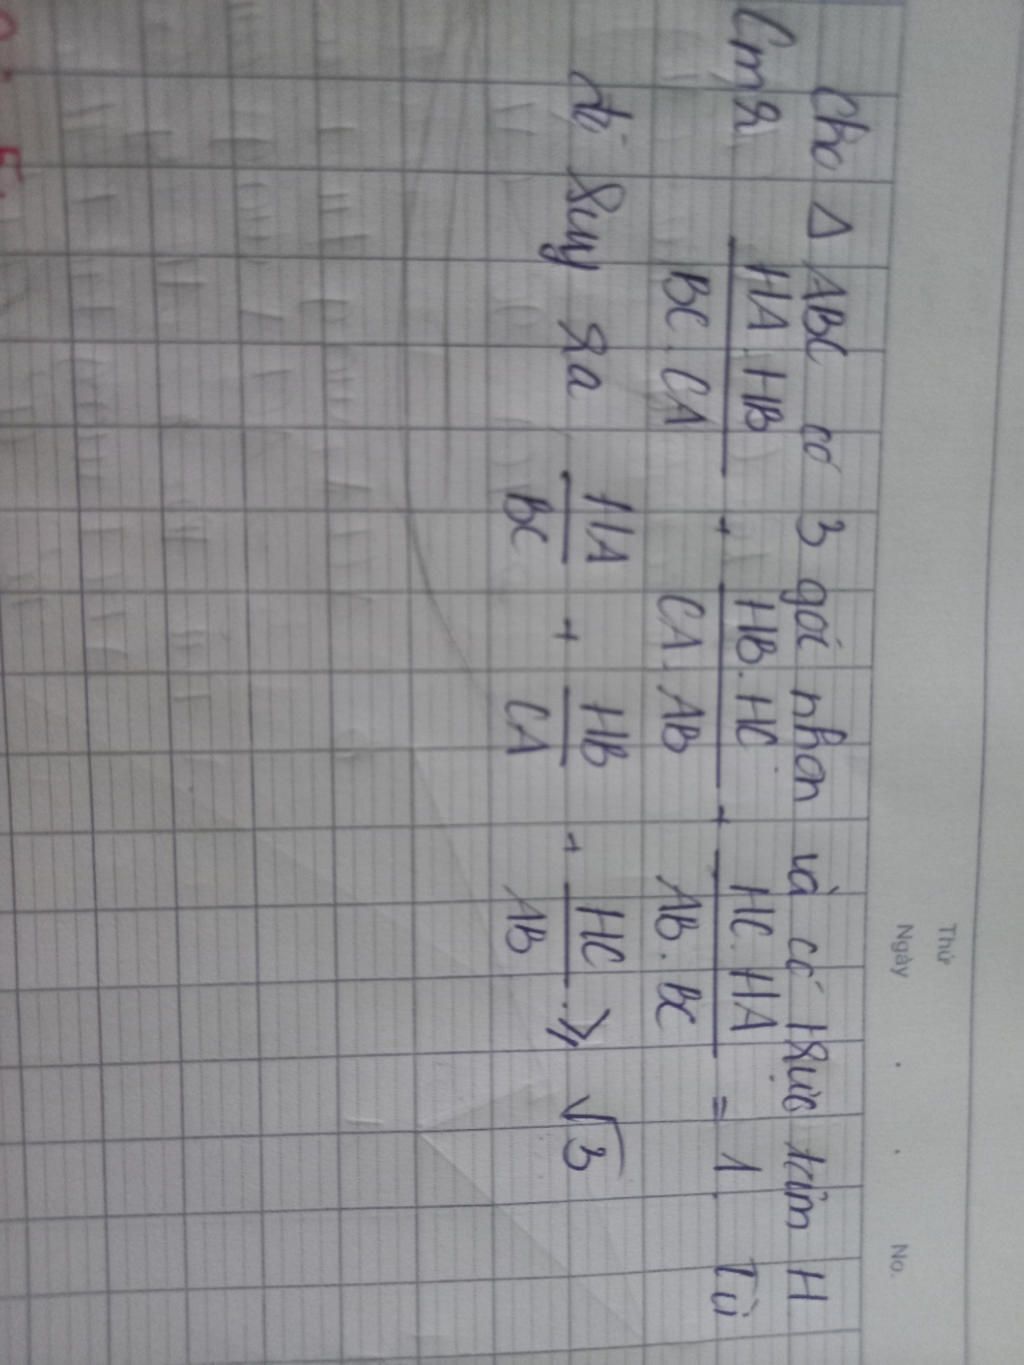 Thứ
Ngày . . No.
Cho Δ ABC có 3 góc nhọn và có trực tâm H.
CmR HA.HB/BC.CA + HB.HC/CA.AB + HC.HA/AB.BC = 1. Từ
đó suy ra HA/BC + HB/CA + HC/AB ≥ √3